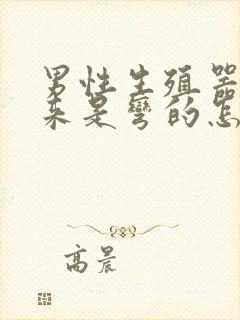 男性生殖器
来是弯的怎
高晨